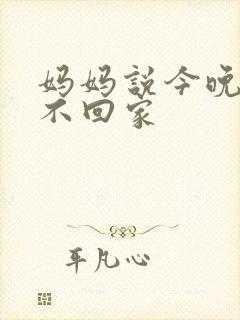 妈妈説今晚
不回家
平凡心